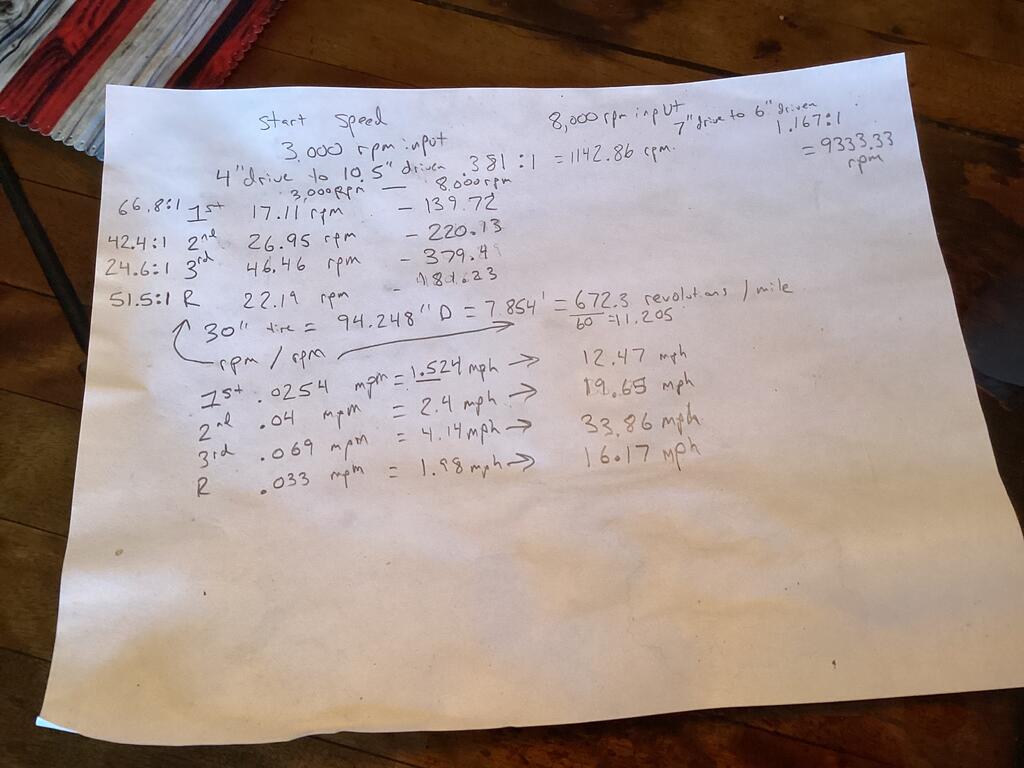 start speed
8,000 rpm input
3,000 rpm input
7" drive to 6" driven
1.167:1
4" drive to 10.5" driven .381:1 = 1142.86 rpm.
= 9333.33 rpm
3,000 rpm — 8,000 rpm
66.8:1 1st 17.11 rpm - 139.72
42.4:1 2nd 26.95 rpm - 220.13
24.6:1 3rd 46.46 rpm - 379.4
51.5:1 R 22.19 rpm - 181.23
30" tire = 94.248" D = 7.854' = 672.3 revolutions / mile
60 = 11.205
rpm / rpm
1st .0254 mpm = 1.524 mph → 12.47 mph
2nd .04 mpm = 2.4 mph → 19.65 mph
3rd .069 mpm = 4.14 mph → 33.86 mph
R .033 mpm = 1.98 mph → 16.17 mph